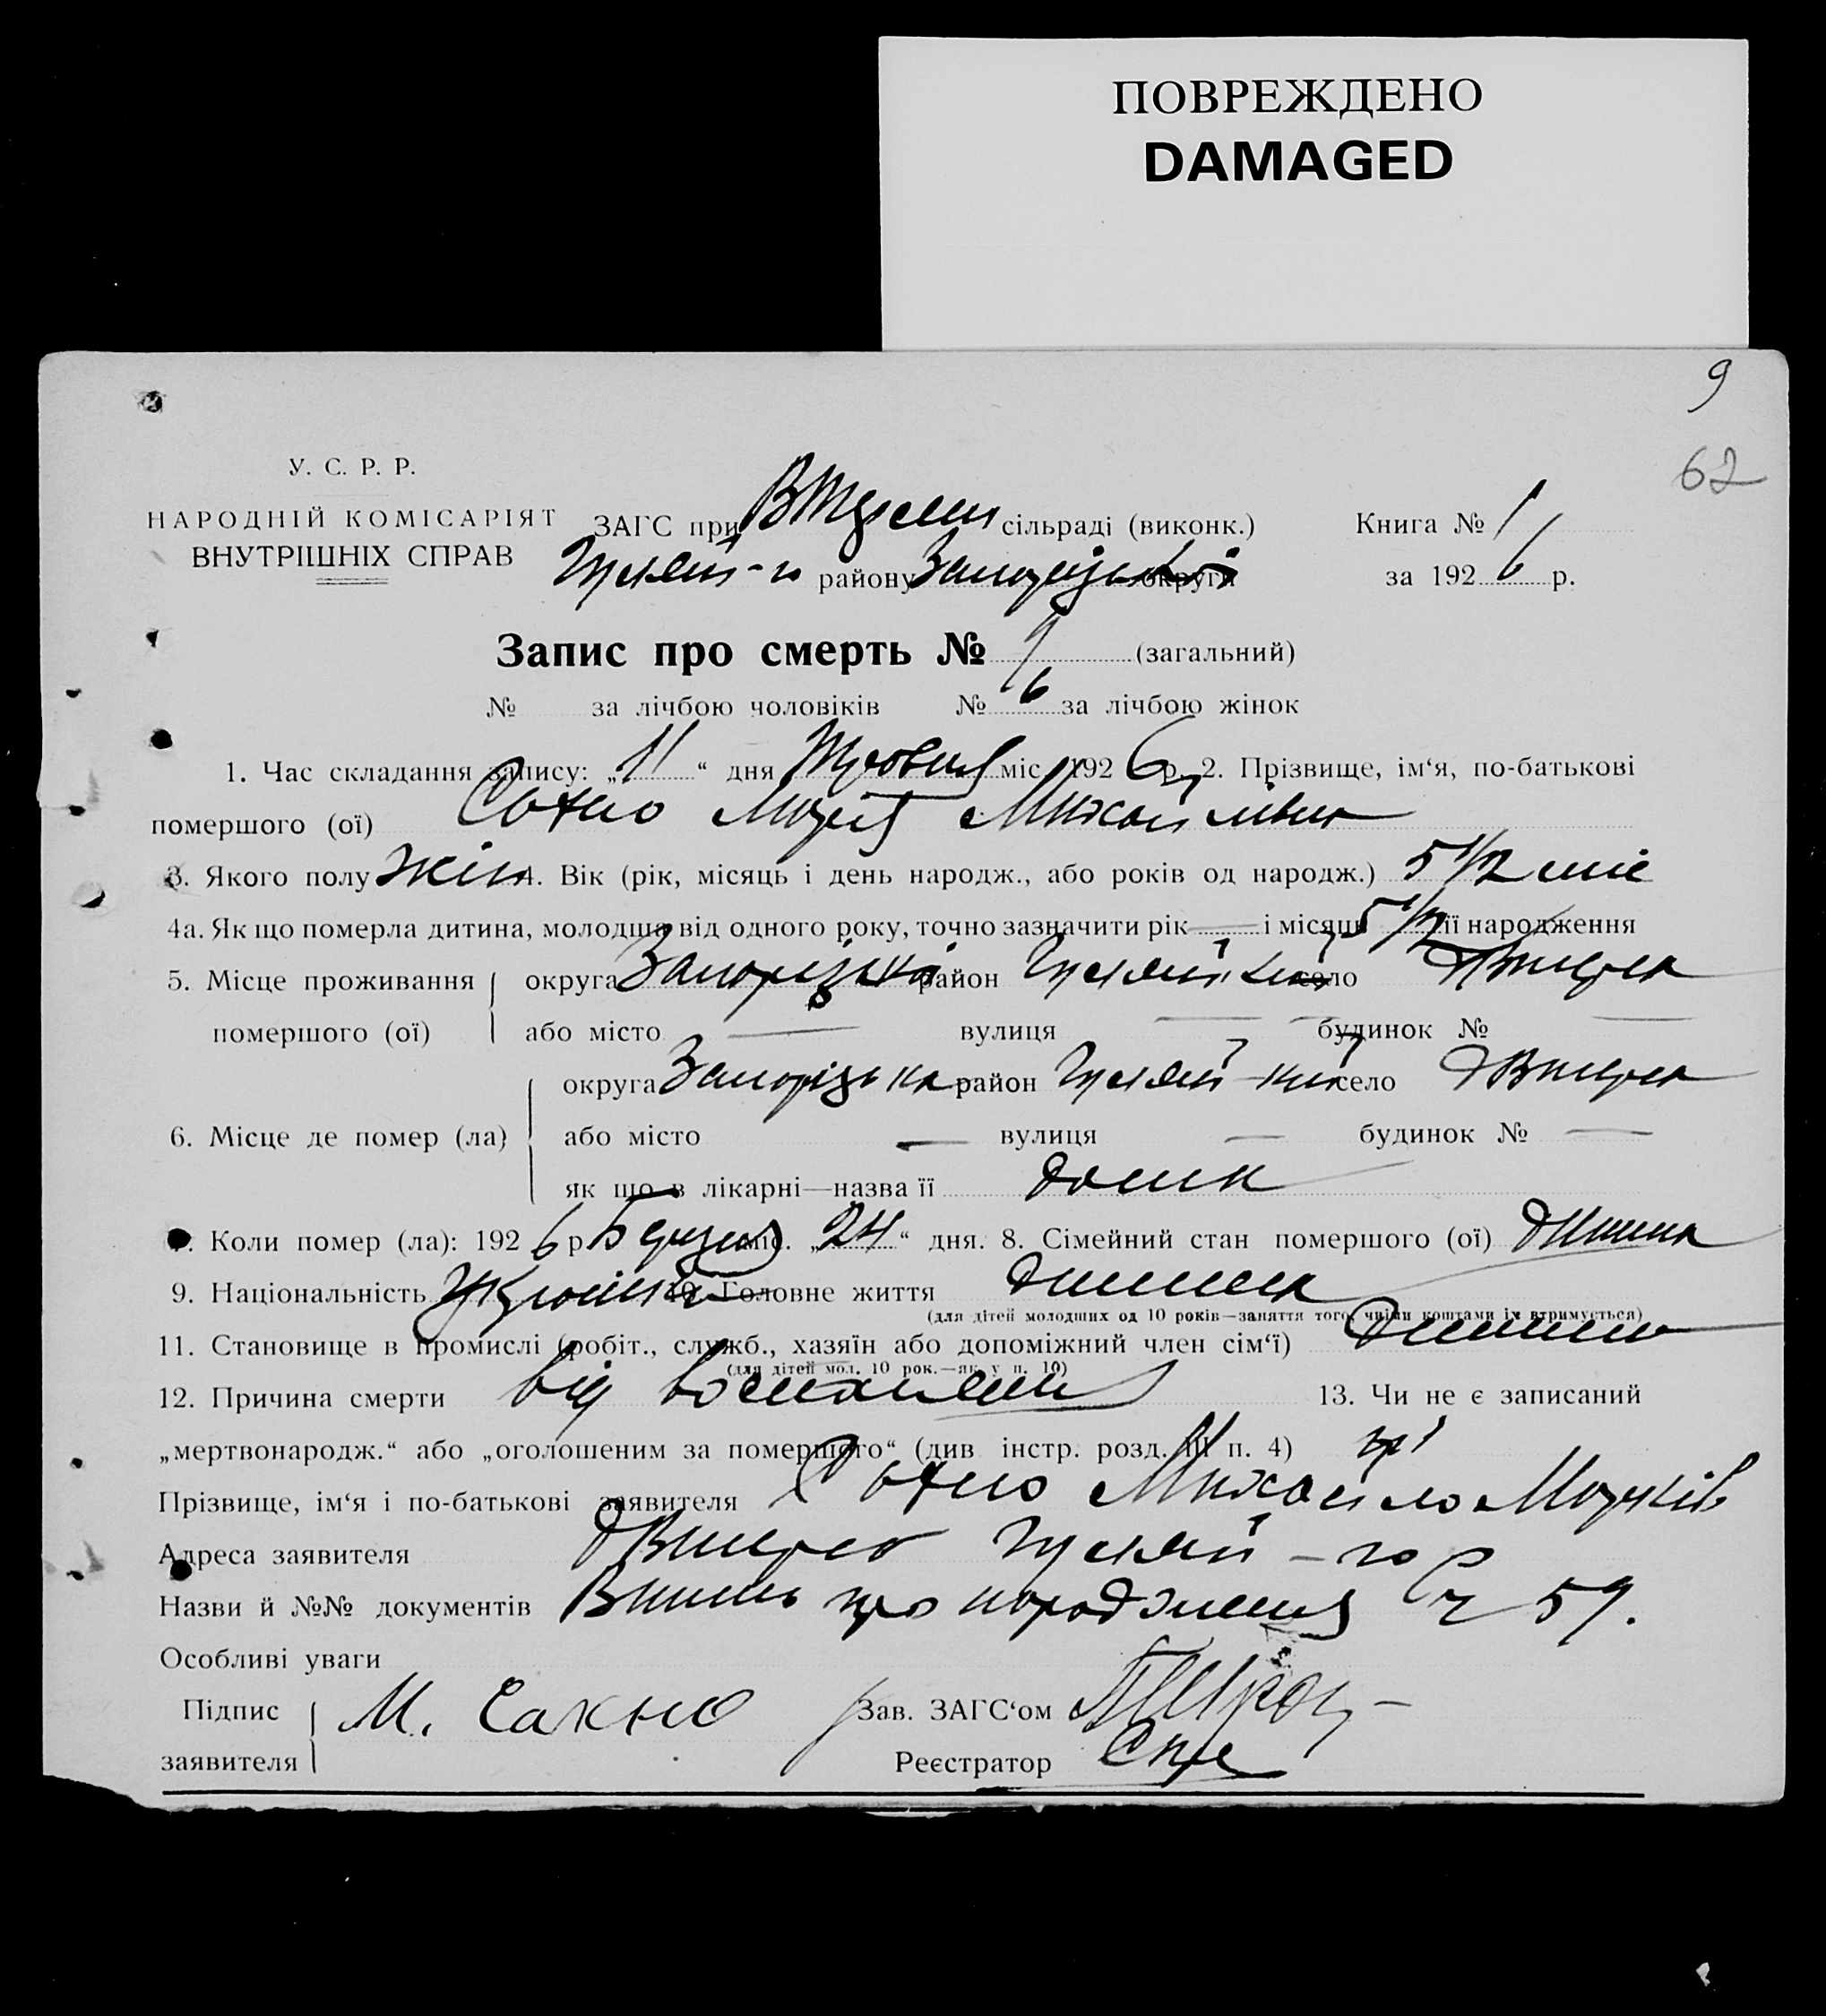 ПОВРЕЖДЕНО
DAMAGED
9
62
У. С. Р. Р.
НАРОДНІЙ КОМІСАРІЯТ
ВНУТРІШНІХ СПРАВ
ЗАГС при сільраді (виконк.)
Гуляй-го району Запорізької округи
Книга № 1
за 1926 р.
Запис про смерть № 9 (загальний)
№ за лічбою чоловіків № 6 за лічбою жінок
1. Час складання запису: „11“ дня Травня міс. 1926 р. 2. Прізвище, ім‘я, по-батькові
помершого (ої) Сахно Марія Михайлівна
3. Якого полу Жін 4. Вік (рік, місяць і день народж., або років од народж.) 5 1/2 міс
4а. Як що померла дитина, молодша від одного року, точно зазначити рік — і місяць 5 1/2 її народження
5. Місце проживання
помершого (ої)
округа Запорізька район Гуляй село
або місто — вулиця — будинок № —
6. Місце де помер (ла)
округа Запорізька район Гуляй-кий село
або місто — вулиця — будинок № —
як що в лікарні—назва її дома
7. Коли помер (ла): 1926 р. Березня міс. „24“ дня. 8. Сімейний стан помершого (ої) дитина
9. Національність Українка 10. Головне життя дитина
(для дітей молодших од 10 років—заняття того, чиїми коштами їх втримується)
11. Становище в промислі (робіт., служб., хазяїн або допоміжний член сім‘ї) дитина
(для дітей мол. 10 рок.—як у п. 10)
12. Причина смерти від воспаления 13. Чи не є записаний
„мертвонародж.“ або „оголошеним за померщого“ (див інстр. розд. III п. 4) ні
Прізвище, ім‘я і по-батькові заявителя Сахно Михайло
Адреса заявителя Гуляй-го р
Назви й №№ документів Витяг про народження ч 59.
Особливі уваги
Підпис
заявителя
М. Сахно
Зав. ЗАГС‘ом
Реєстратор